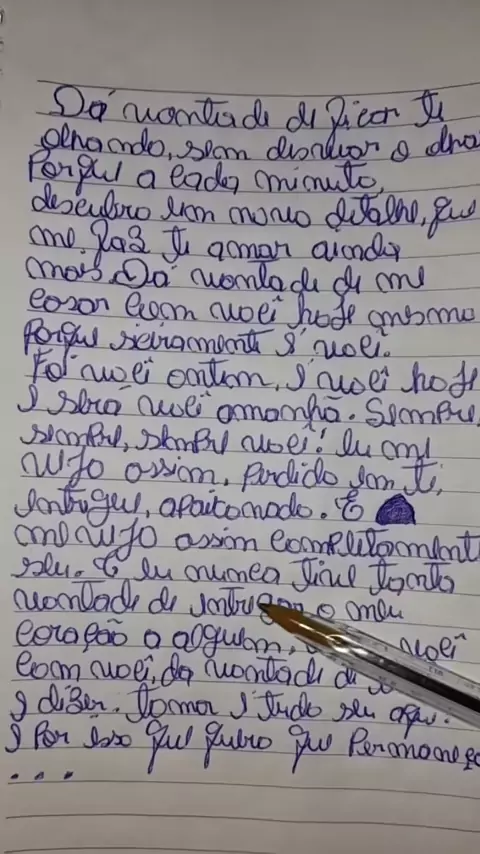 Dá vontade de ficar te
olhando, sem desviar o olha
Porque a cada minuto,
descubro um novo detalhe, que
me faz te amar ainda
mais. Dá vontade de me
casar com você hoje mesmo
Porque seriamente é você.
Foi você ontem, é você hoje
e será você amanhã. Sempre,
sempre, sempre você! Eu me
vejo assim, perdido em ti,
entregue, apaixonado. E
me vejo assim completament
seu. E eu nunca tive tanta
vontade de entregar o meu
coração a alguem, você
com você, da vontade de
e dizer. toma é tudo seu aqui.
é por isso que quero que Permaneça
...